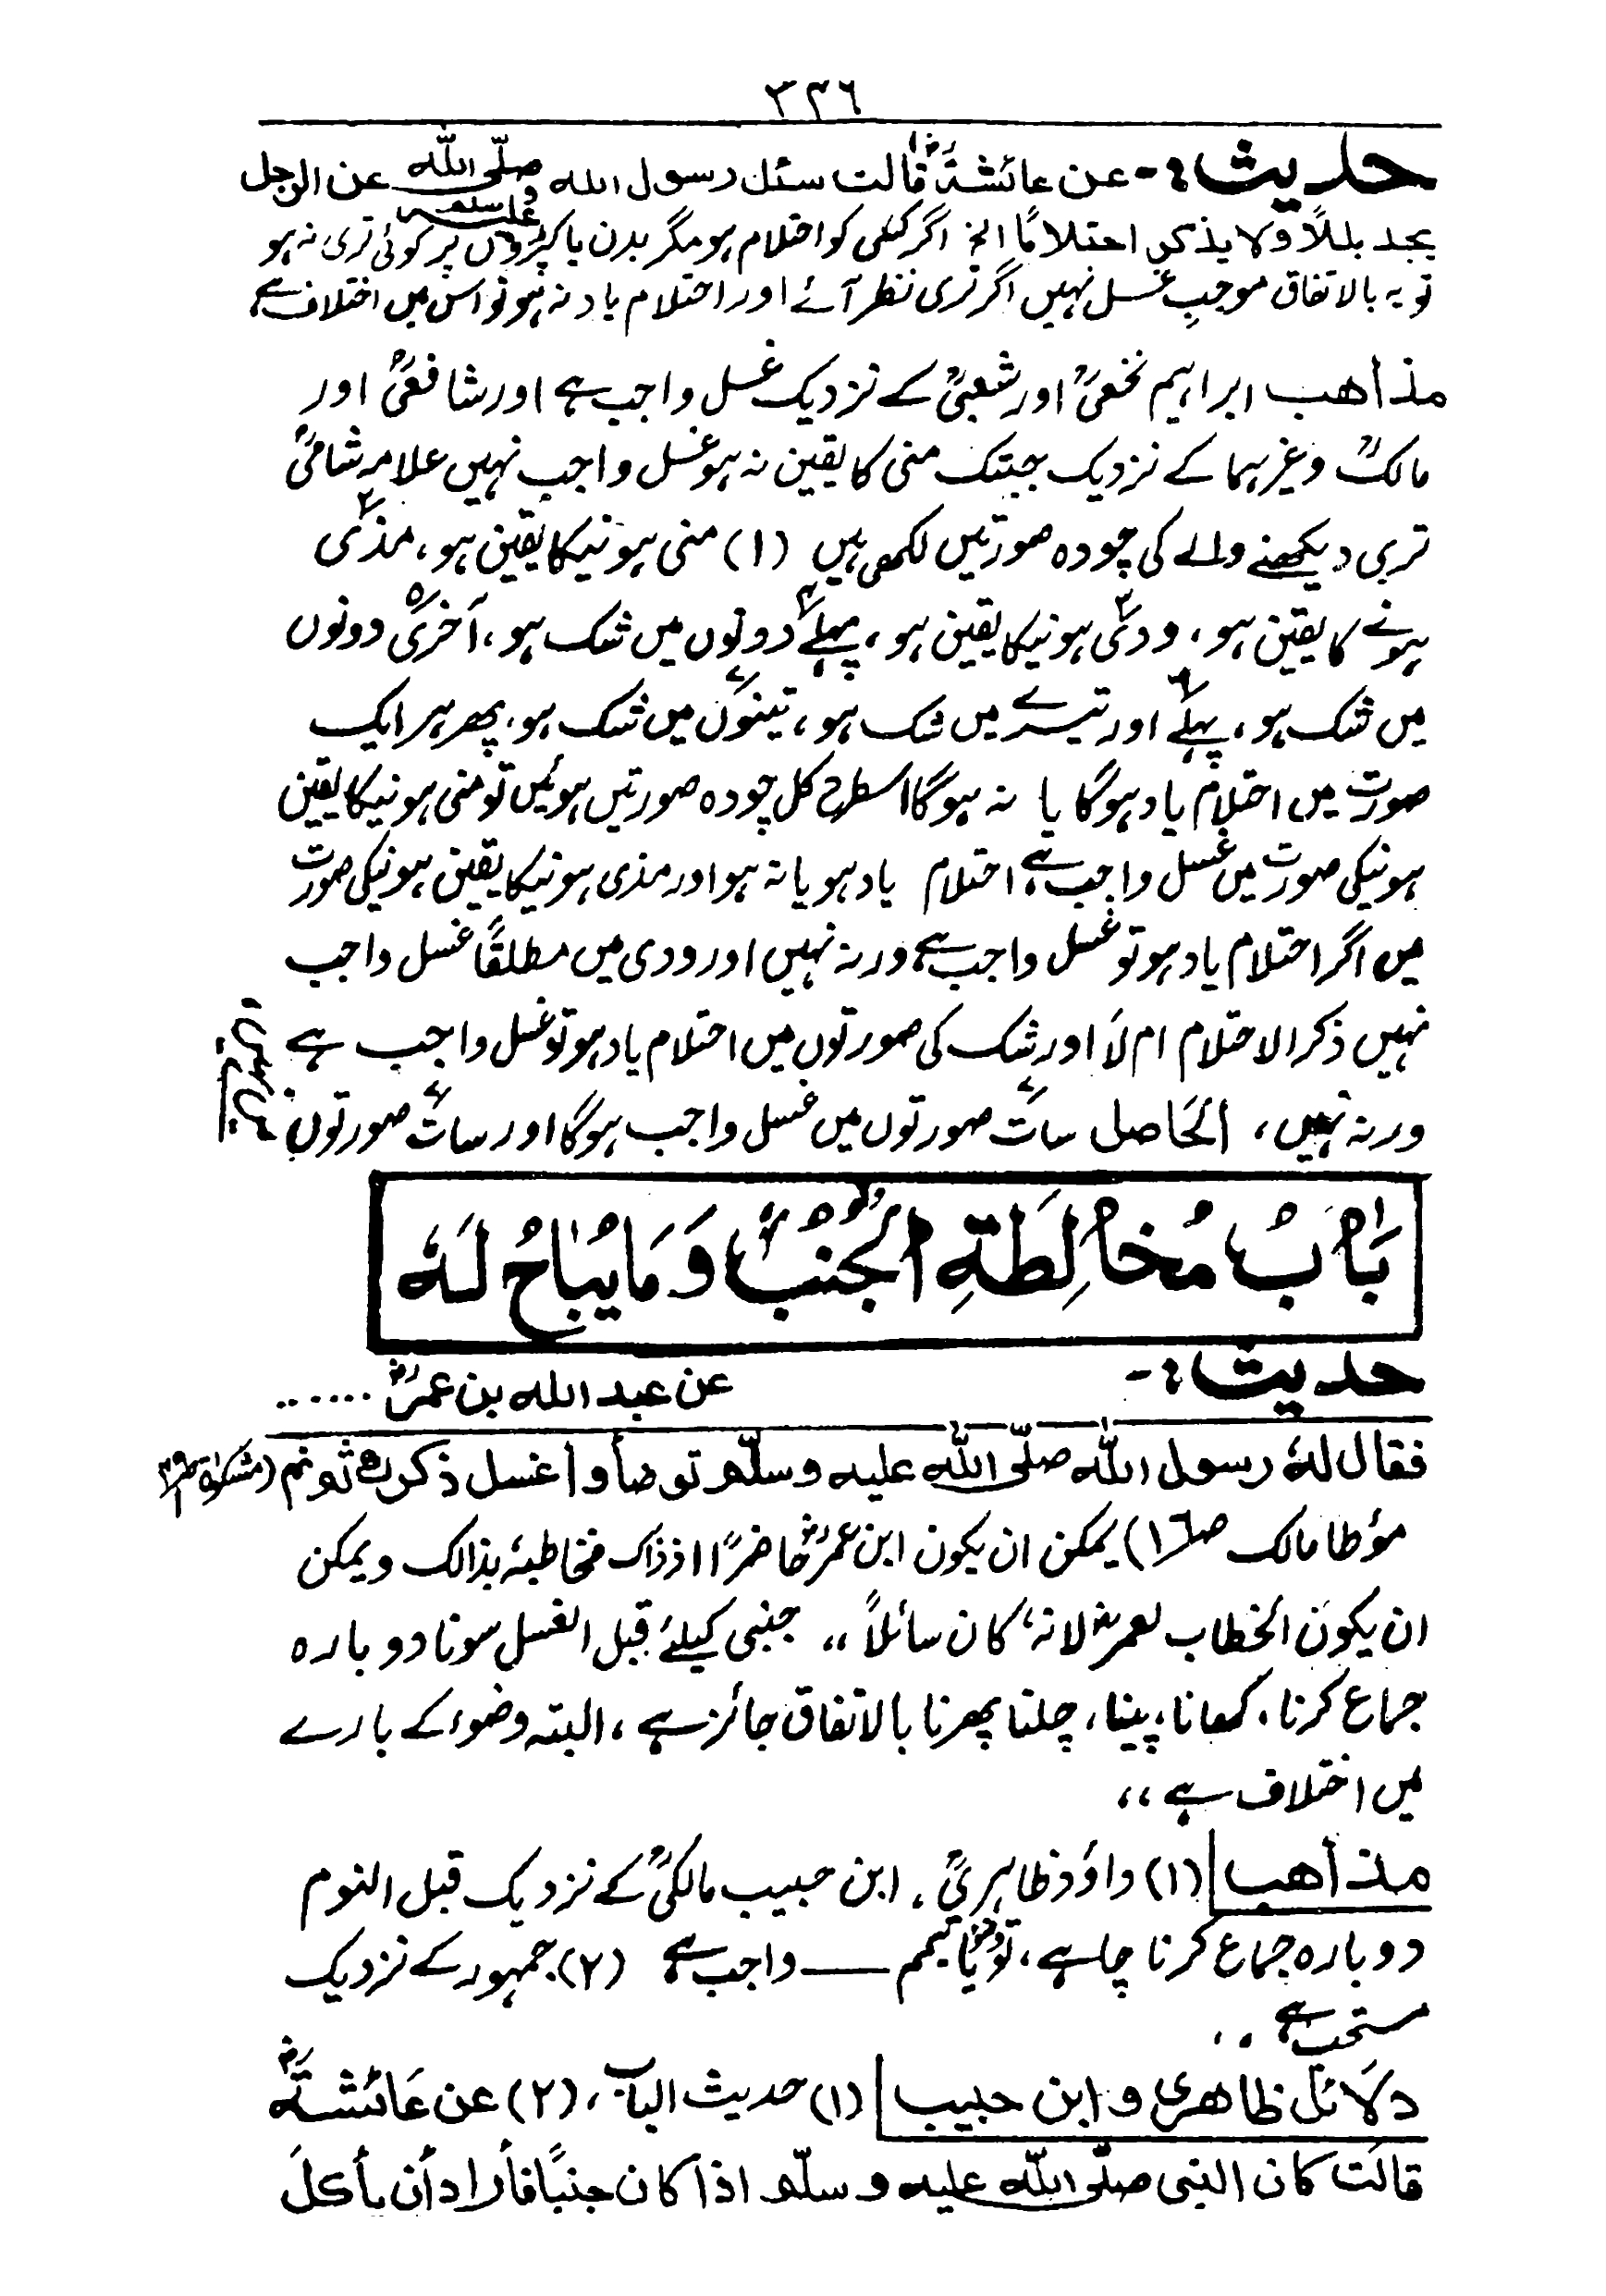 ۳۳٦
حدیث :- عن عائشۃؓ قالت سئل رسول الله صلّی الله علیہ وسلم عن الرجل
یجد بللاً ولا یذکر احتلامًا الخ اگر کسی کو احتلام ہو مگر بدن یا کپڑوں پر کوئی تری نہ ہو
تو یہ بالاتفاق موجبِ غسل نہیں اگر تری نظر آئے اور احتلام یاد نہ ہو تو اس میں اختلاف ہے
مذاھب ابراہیم نخعیؒ اور شعبیؒ کے نزدیک غسل واجب ہے اور شافعیؒ اور
مالکؒ وغیرہما کے نزدیک جبتک منی کا یقین نہ ہو غسل واجب نہیں علامہ شامیؒ
تری دیکھنے والے کی چودہ صورتیں لکھی ہیں (۱) منی ہونیکا یقین ہو، ۲ مذی
ہونے کا یقین ہو، ۳ ودی ہونیکا یقین ہو، ۴ پہلے دونوں میں شک ہو، ۵ آخری دونوں
میں شک ہو، ۶ پہلے اور تیسرے میں شک ہو، ۷ تینوں میں شک ہو، پھر ہر ایک
صورت میں احتلام یاد ہوگا یا نہ ہوگا اسطرح کل چودہ صورتیں ہوئیں تو منی ہونیکا یقین
ہونیکی صورت میں غسل واجب ہے، احتلام یاد ہو یا نہ ہو اور مذی ہونیکا یقین ہونیکی صورت
میں اگر احتلام یاد ہو تو غسل واجب ہے ورنہ نہیں اور ودی میں مطلقًا غسل واجب
نہیں ذکر الاحتلام ام لَا اور شک کی صورتوں میں احتلام یاد ہو تو غسل واجب ہے
ورنہ نہیں، الحَاصل سات ۷ صورتوں میں غسل واجب ہوگا اور سات ۷ صورتوں
بَابُ مُخَالِطَۃِ الْجُنُبِ وَمَا یُبَاحُ لَہٗ
حدیث :- عن عبد الله بن عمرؓ ......
فقال لہٗ رسول الله صلّی الله علیہ وسلّم توضأ واغسل ذکرک ثم نم (مشکوٰۃ ص۴۹
مؤطا مالک ص۱٦) یمکن ان یکون ابن عمرؓ حاضرًا اذ ذاک فخاطبہٗ بذالک ویمکن
ان یکون الخطاب لعمرؓ لانہٗ کان سائلاً ،، جنبی کیلئے قبل الغسل سونا دوبارہ
جماع کرنا، کھانا، پینا، چلنا پھرنا بالاتفاق جائز ہے، البتہ وضوء کے بارے
میں اختلاف ہے ،،
مذاھب (۱) داؤد ظاہریؒ، ابن حبیب مالکیؒ کے نزدیک قبل النوم
دوبارہ جماع کرنا چاہے، تو وضو یا تیمم ــــ واجب ہے (۲) جمہور کے نزدیک
مستحب ہے ،،
دلَائل ظاھری و ابن حبیب (۱) حدیث الباب، (۲) عن عَائشۃؓ
قالَت کان النبی صلّی الله علیہ وسلّم اذا کان جنبًا فأراد أن یأکلَ